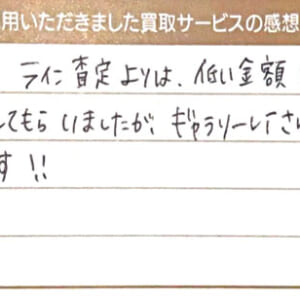 用いただきました買取サービスの感想
ライン査定よりは、低い金額
してもらいましたが、ギャラリーレアさん
す!!